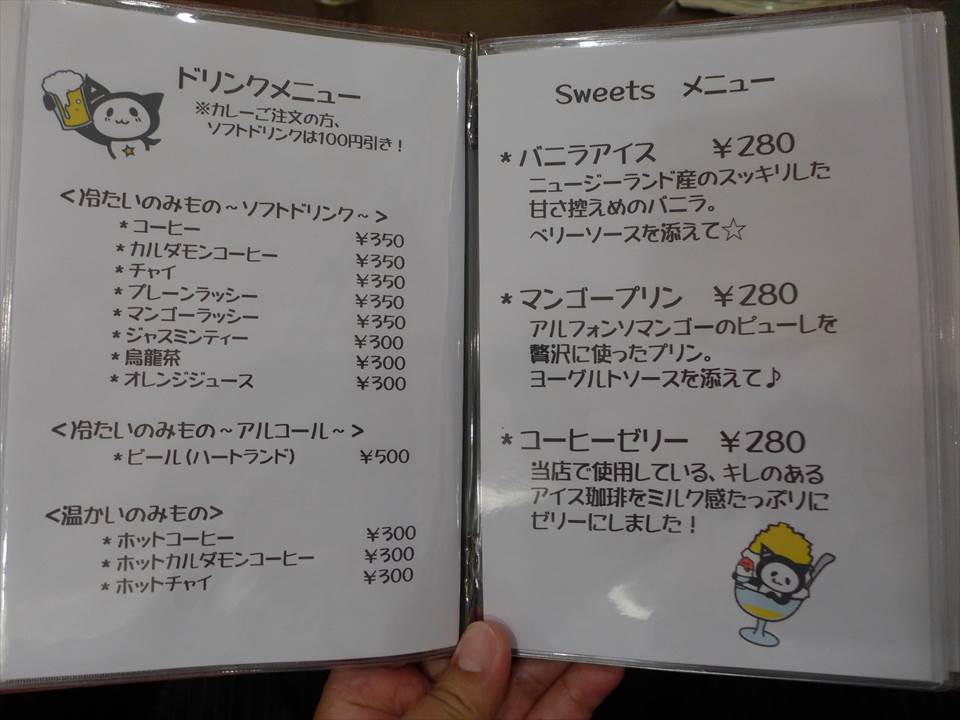 ドリンクメニュー
※カレーご注文の方、
ソフトドリンクは100円引き！
<冷たいのみもの～ソフトドリンク～>
*コーヒー ¥350
*カルダモンコーヒー ¥350
*チャイ ¥350
*プレーンラッシー ¥350
*マンゴーラッシー ¥350
*ジャスミンティー ¥300
*烏龍茶 ¥300
*オレンジジュース ¥300
<冷たいのみもの～アルコール～>
*ビール(ハートランド) ¥500
<温かいのみもの>
*ホットコーヒー ¥300
*ホットカルダモンコーヒー ¥300
*ホットチャイ ¥300
Sweets メニュー
*バニラアイス ¥280
ニュージーランド産のスッキリした
甘さ控えめのバニラ。
ベリーソースを添えて☆
*マンゴープリン ¥280
アルフォンソマンゴーのピューレを
贅沢に使ったプリン。
ヨーグルトソースを添えて♪
*コーヒーゼリー ¥280
当店で使用している、キレのある
アイス珈琲をミルク感たっぷりに
ゼリーにしました！